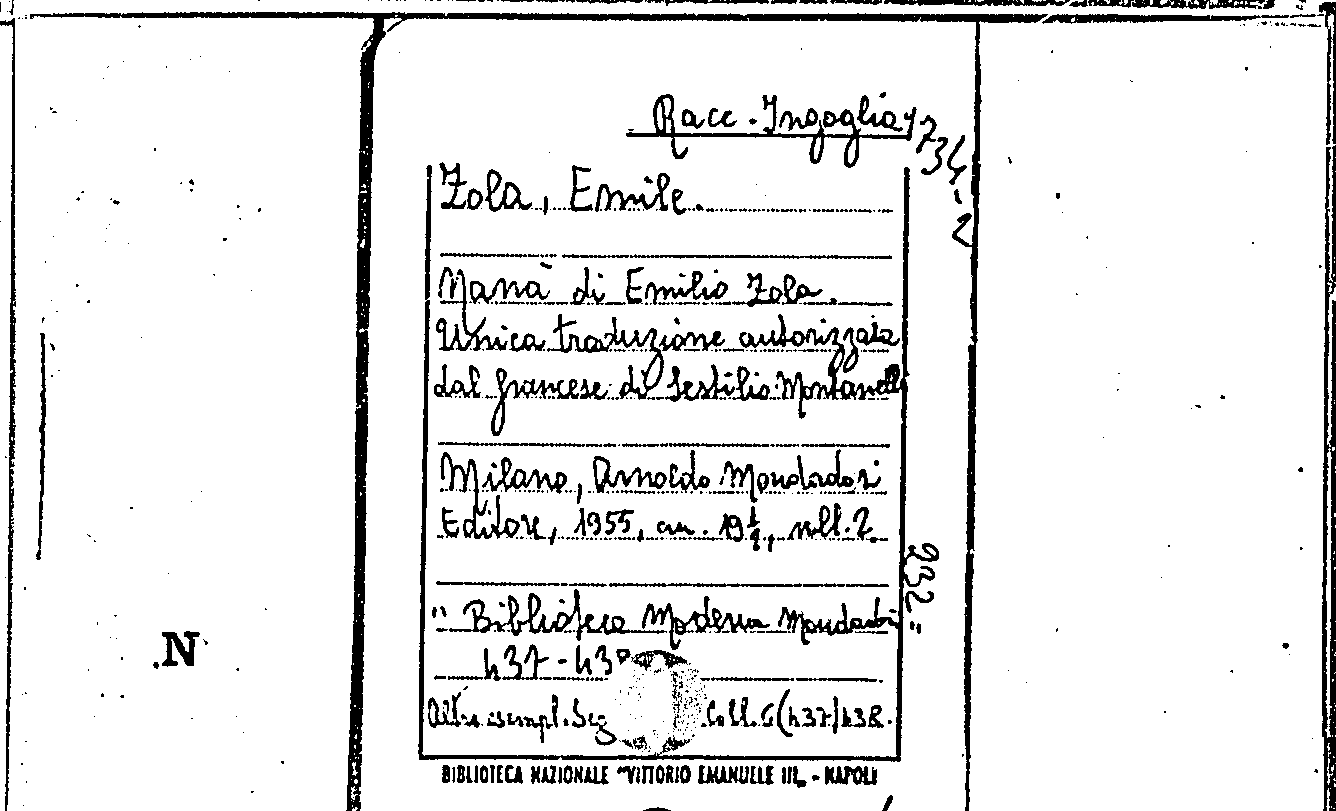 Racc. Ingoglia 1734-2
Zola, Emile.
Nanà di Emilio Zola.
Unica traduzione autorizzata
dal francese di Sestilio Montanelli
Milano, Arnoldo Mondadori
Editore, 1955, cm. 19 ½, voll. 2.
" Biblioteca Moderna Mondadori "
437-438
232
Altro esempl. Seg Coll. G(437/438.
BIBLIOTECA NAZIONALE "VITTORIO EMANUELE III„ - NAPOLI
N